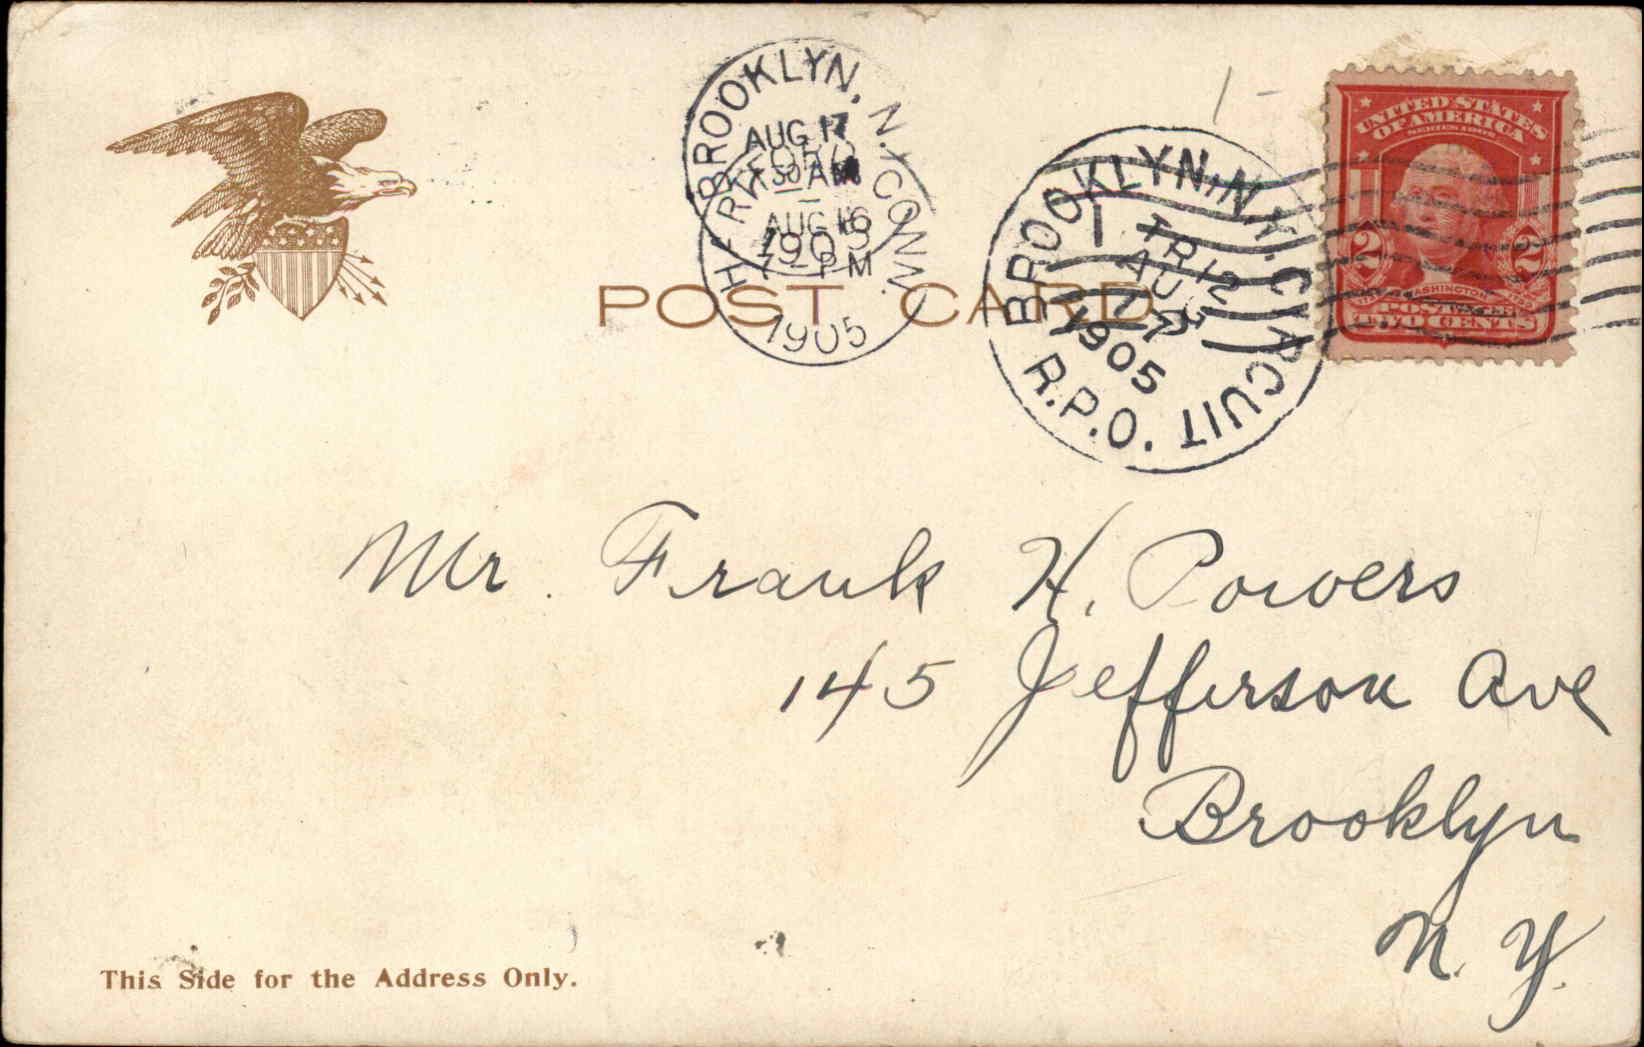 BROOKLYN, N.Y.
AUG 17
AM
1905
HARTFORD CONN.
AUG 16
7 PM
1905
BROOKLYN, N.Y. CIRCUIT R.P.O.
TR 12
AUG
17
1905
UNITED STATES
OF AMERICA
2 2
WASHINGTON
POSTAGE
TWO CENTS
POST CARD
Mr. Frank H. Powers
145 Jefferson Ave
Brooklyn
N. Y.
This Side for the Address Only.